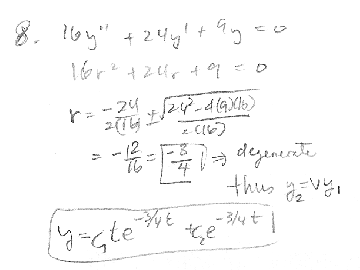 8. 16y" + 24y' + 9y = 0
16r² + 24r + 9 = 0
r = -24/2(16) ± √(24² - 4(9)(16))/2(16)
= -12/16 = -3/4 } ⇒ degenerate
thus y₂ = vy₁
y = c₁te^(-3/4t) + c₂e^(-3/4t)